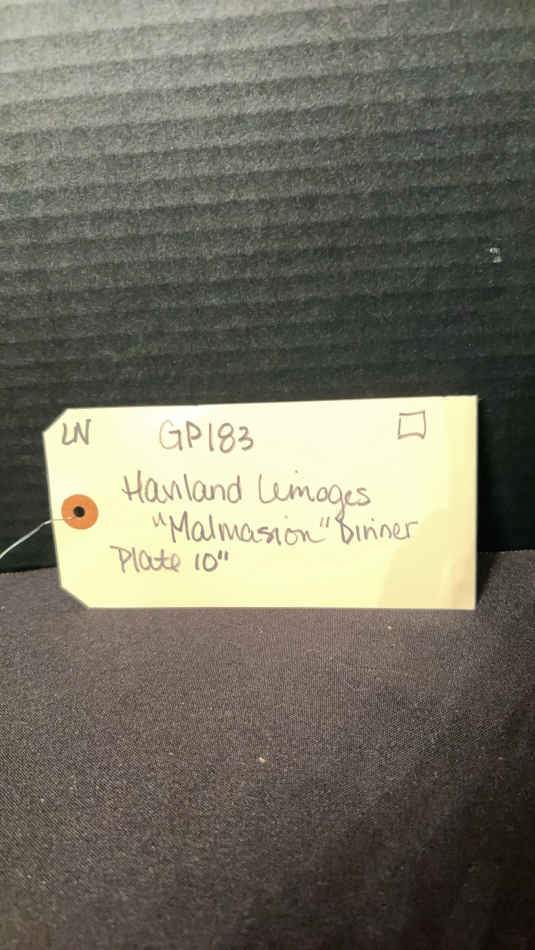 LN GP183
Haviland Limoges
"Malmasion" Dinner
Plate 10"